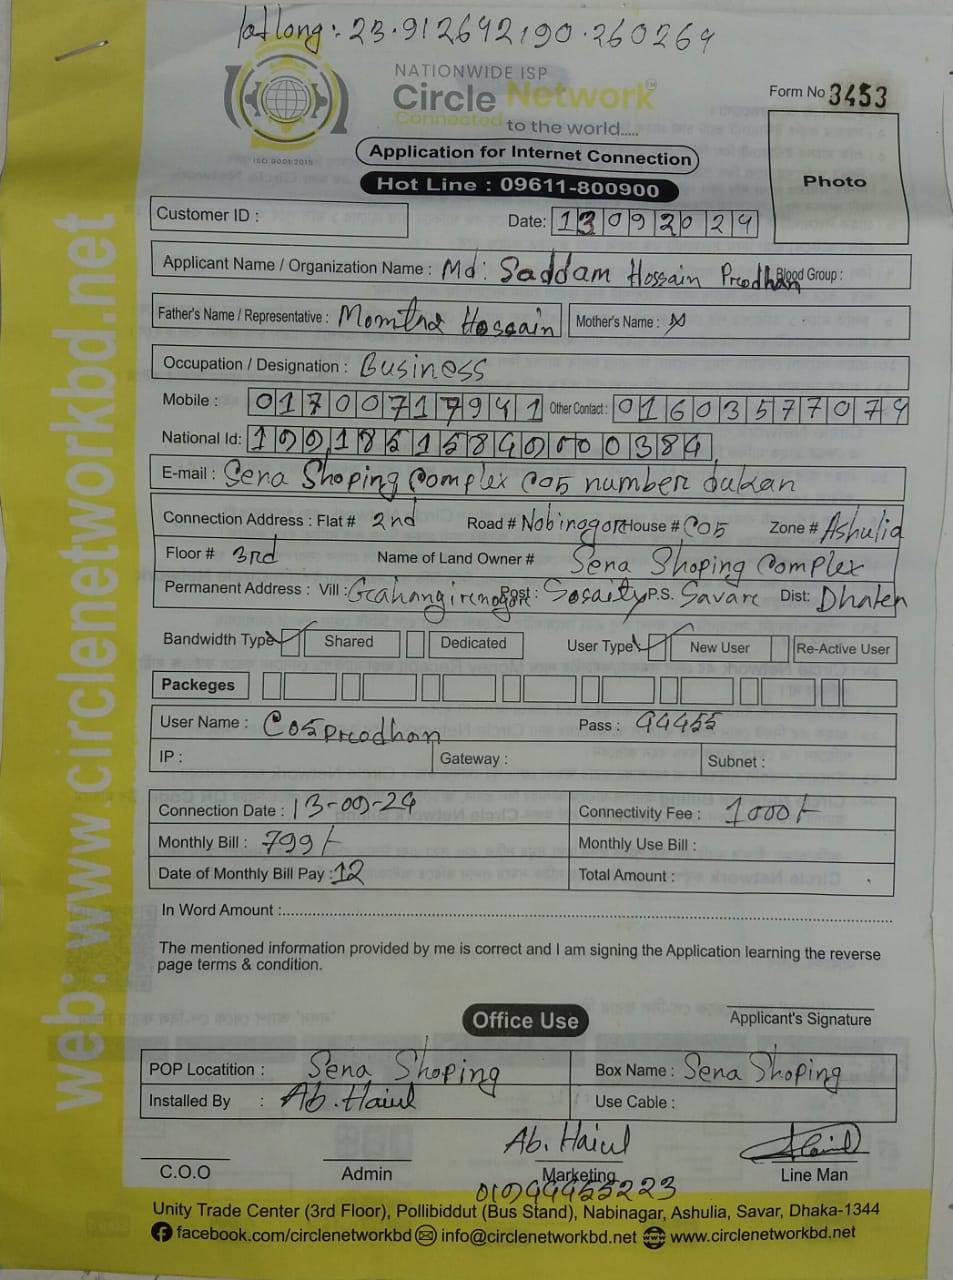 lat long : 23.912642, 90.260264
NATIONWIDE ISP
Circle Network
Connected to the world.....
ISO 9001:2015
Form No 3453
Application for Internet Connection
Photo
Hot Line : 09611-800900
Customer ID :
Date: 13092024
Applicant Name / Organization Name : Md: Saddam Hossain Preodhan Blood Group :
Father's Name / Representative : Hossain Mother's Name :
Occupation / Designation : Business
Mobile : 01700717941 Other Contact : 01603577074
National Id:
E-mail : Sena Shoping Complex C05 number dukan
Connection Address : Flat # 2nd Road # Nobinogor House # C05 Zone # Ashulia
Floor # 3rd Name of Land Owner # Sena Shoping Complex
Permanent Address : Vill : Post : Sosaity P.S. Savare Dist:
Bandwidth Type Shared Dedicated User Type New User Re-Active User
Packeges
User Name : C05preodhan Pass : 94455
IP : Gateway : Subnet :
Connection Date : 13-09-24 Connectivity Fee : 1000/-
Monthly Bill : 799/- Monthly Use Bill :
Date of Monthly Bill Pay : 12 Total Amount :
In Word Amount :
The mentioned information provided by me is correct and I am signing the Application learning the reverse
page terms & condition.
Applicant's Signature
Office Use
POP Locatition : Sena Shoping Box Name : Sena Shoping
Installed By : Ab. Haiul Use Cable :
Ab. Haiul
C.O.O Admin Marketing Line Man
Unity Trade Center (3rd Floor), Pollibiddut (Bus Stand), Nabinagar, Ashulia, Savar, Dhaka-1344
facebook.com/circlenetworkbd info@circlenetworkbd.net www.circlenetworkbd.net
web: www.circlenetworkbd.net